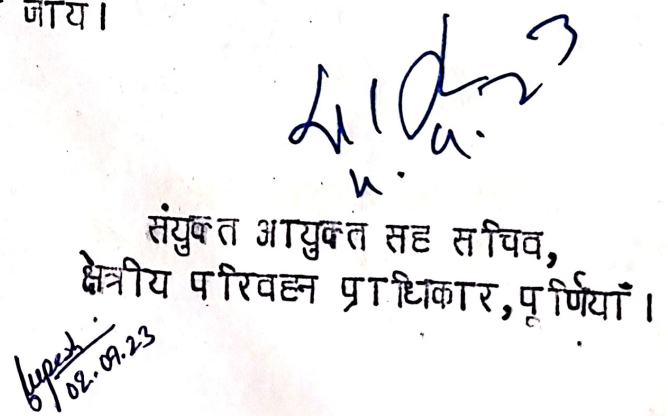 जाय।
संयुक्त आयुक्त सह सचिव,
क्षेत्रीय परिवहन प्राधिकार, पूर्णियाँ।
02.09.23